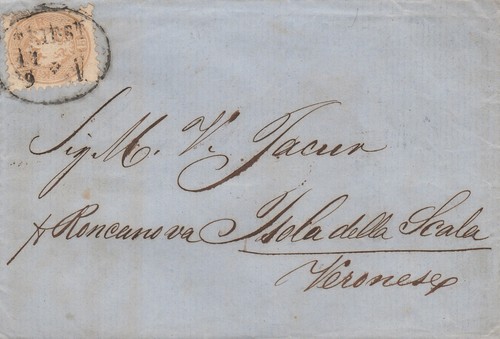 TRIEST
11
9 V.
Sig M. V. Jacur
p Roncanova Isola della Scala
Veronese